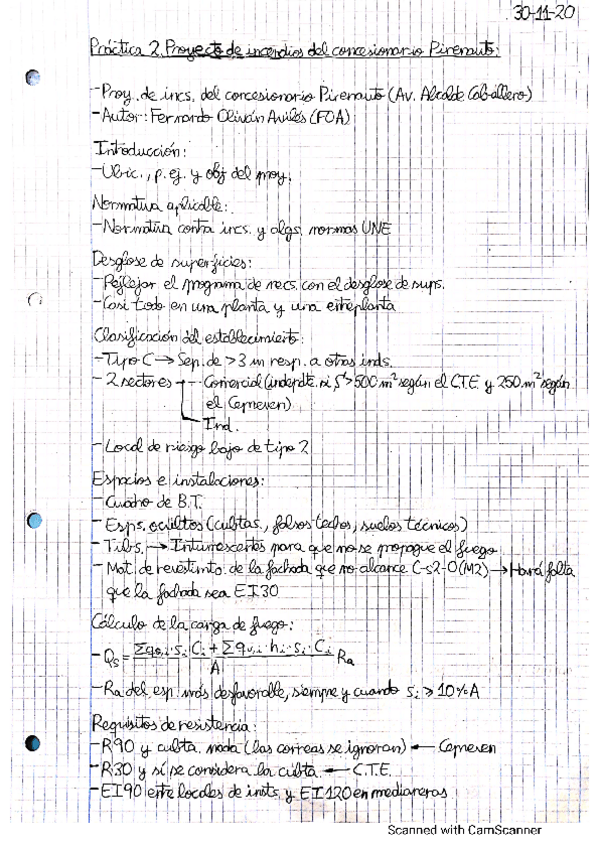 30-11-20
Práctica 2. Proyecto de incendios del concesionario Pirenauto:
-Proy. de incs. del concesionario Pirenauto (Av. Alcalde Caballero)
-Autor: Fernando Oliván Avilés (FOA)
Introducción:
-Ubic., p. ej. y obj del proy.
Normativa aplicable:
-Normativa contra incs. y algs. normas UNE
Desglose de superficies:
-Reflejar el programa de necs. con el desglose de sups.
-Casi todo en una planta y una entreplanta
Clasificación del establecimiento:
-Tipo C → Sep. de >3 m resp. a otras inds.
-2 sectores - Comercial (indepdte. si S>500 m² según el C.T.E. y 250 m² según
el Cepreven)
Ind.
-Local de riesgo bajo de tipo 2
Espacios e instalaciones:
-Cuadro de B.T.
-Esps. ocultos (cubtas., falsos techos, suelos técnicos)
-Tubs. → Intumescentes para que no se propague el fuego
-Mat. de revestimto. de la fachada que no alcance C-s2-0 (M2) → Hará falta
que la fachada sea EI30
Cálculo de la carga de fuego:
-Qs = Σqsi·si·Ci + Σqvi·hi·si·Ci / A Ra
-Ra del esp. más desfavorable, siempre y cuando si ≥ 10% A
Requisitos de resistencia:
-R90 y cubta. nada (las correas se ignoran) ← Cepreven
-R30 y sí se considera la cubta. ← C.T.E.
-EI90 entre locales de insts. y EI120 en medianeras
Scanned with CamScanner